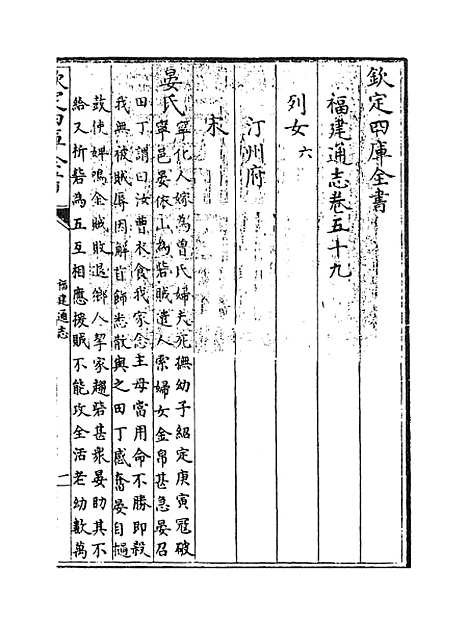 欽定四庫全書
福建通志卷五十九
列女六
汀州府
宋
晏氏寧化人嫁為曾氏婦夫死撫幼子紹定庚寅冦破
寧邑晏依山為砦賊遣人索婦女金帛甚急晏召
田丁謂曰汝曹衣食我家念主母當用命不勝即殺
我無被賊辱因解首飾悉散與之田丁感奮晏自搥
鼓使婢鳴金賊敗退鄉人挈家趨砦甚衆晏助其不
給又析砦為五互相應援賊不能攻全活老幼數萬
欽定四庫全書
福建通志
一